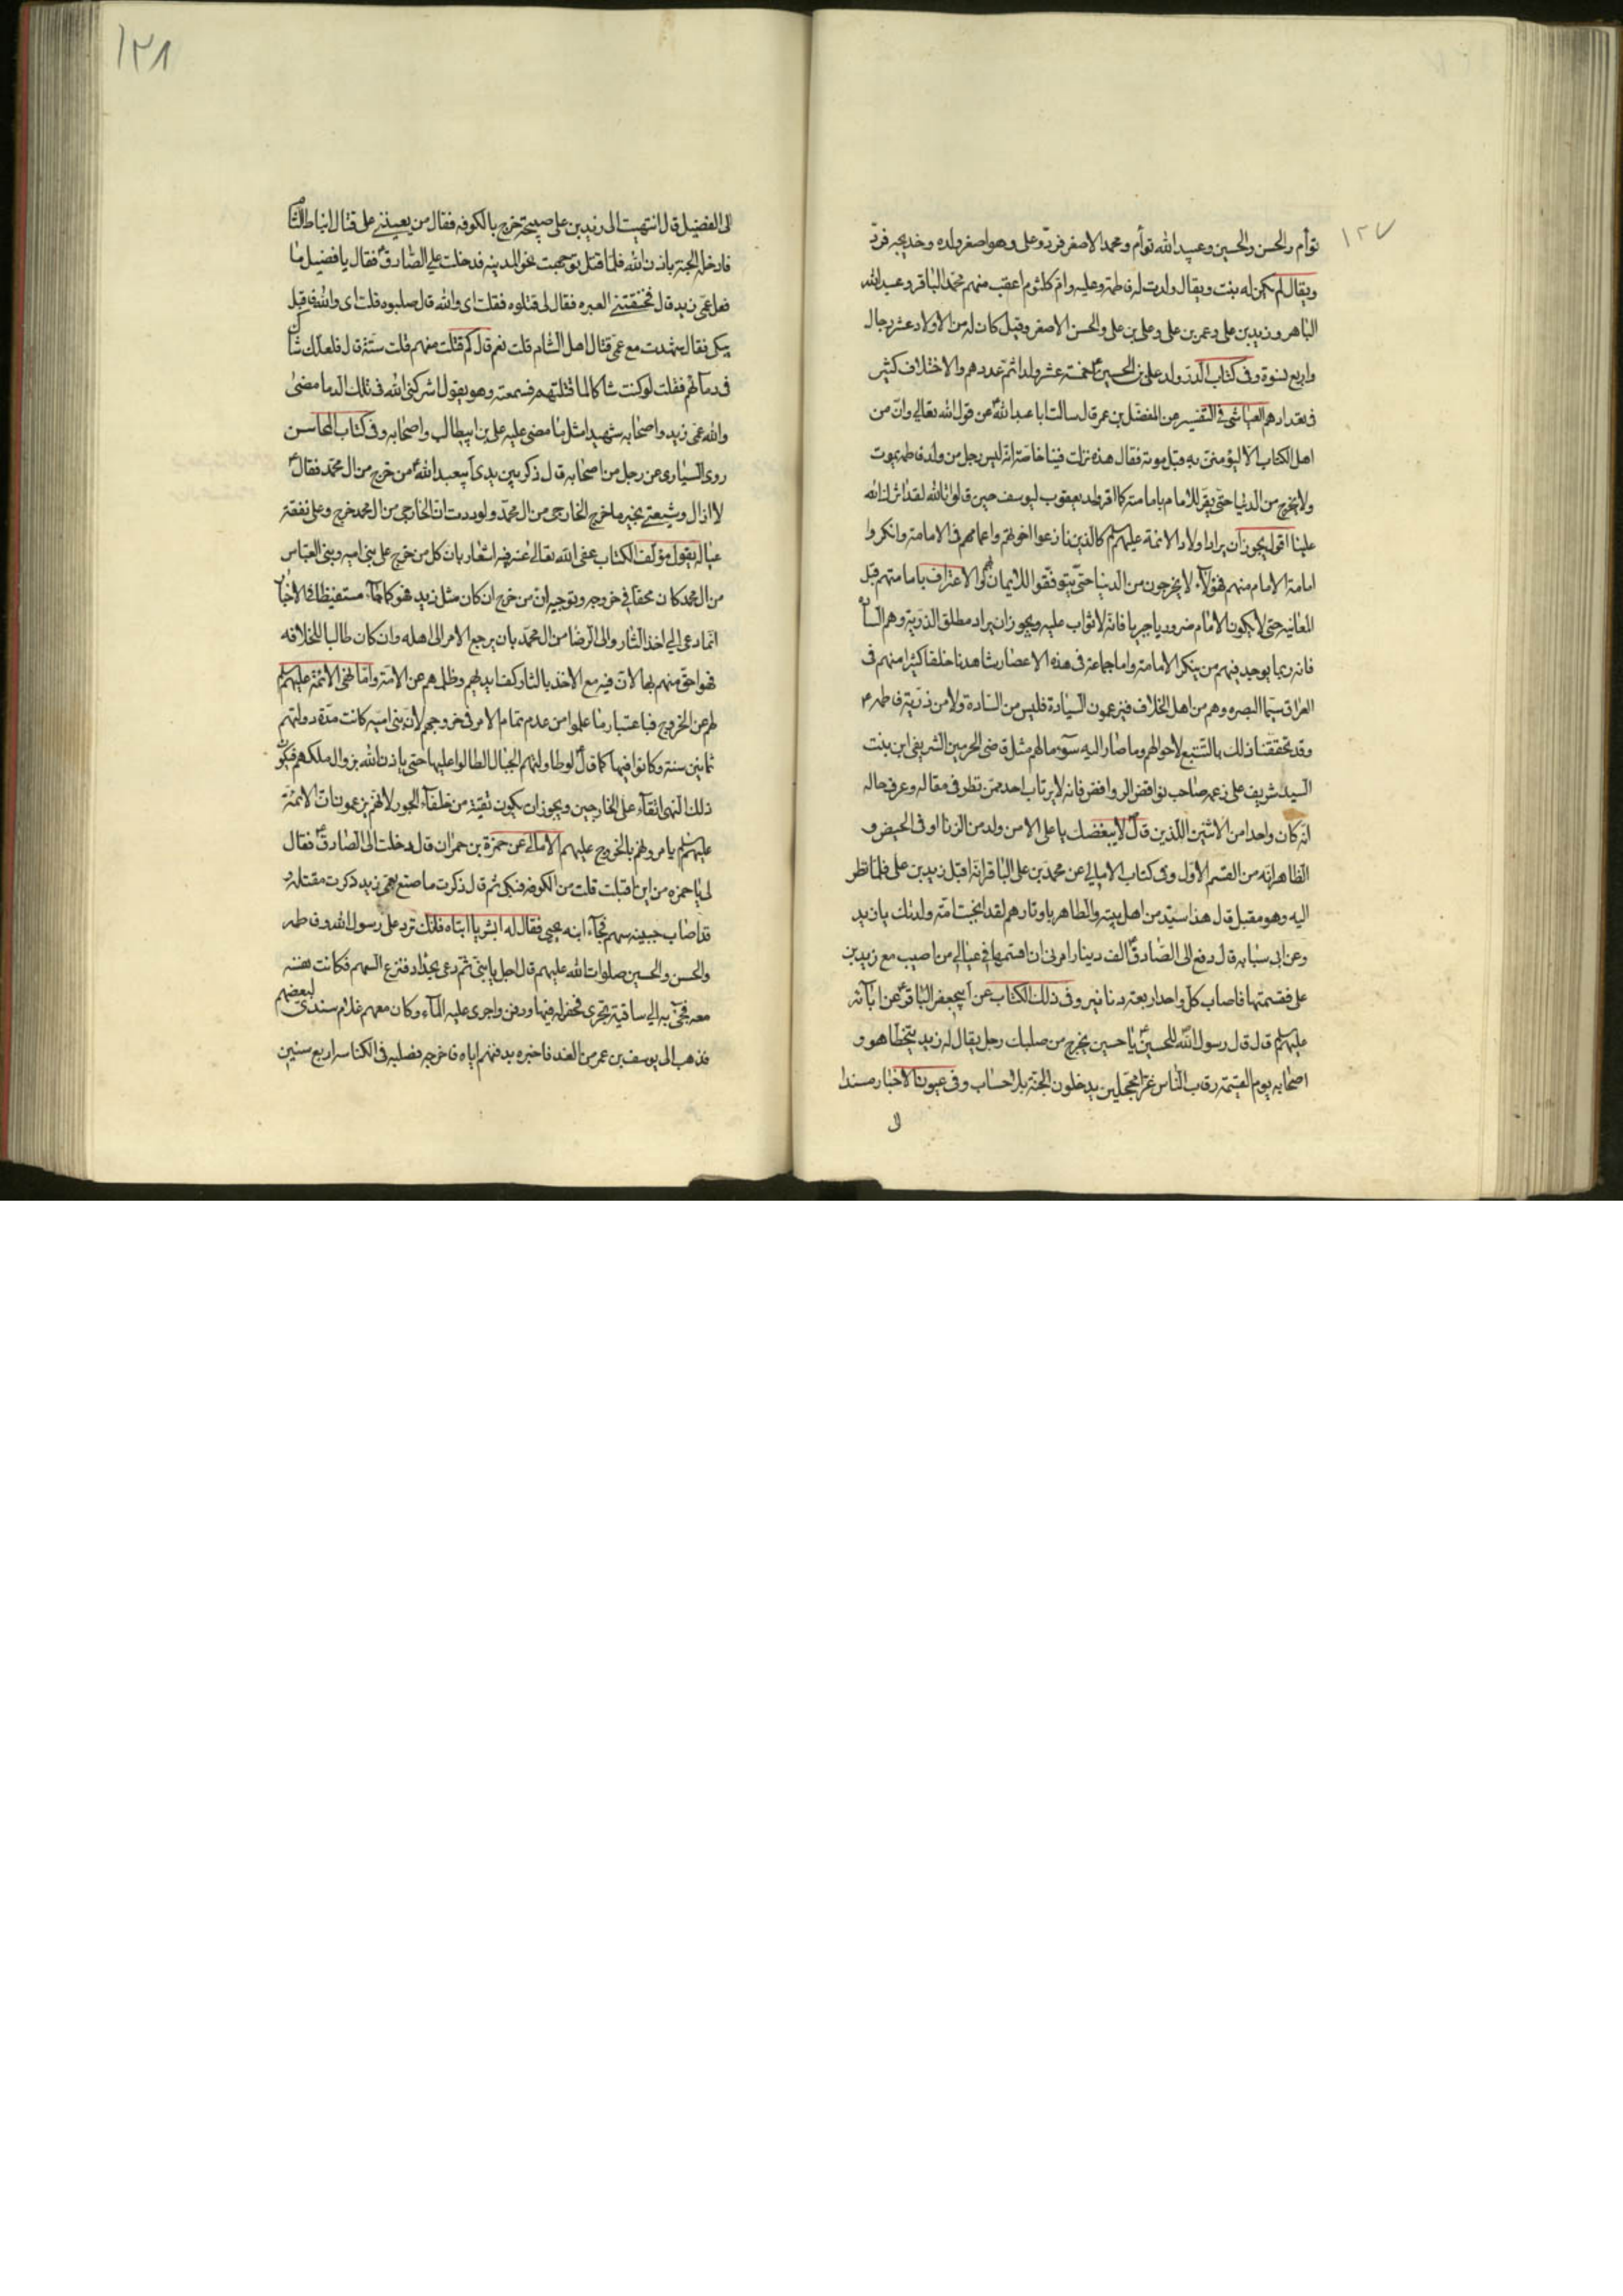 ١٢٧
توأم والحسن والحسين وعبيد الله توأم ومحمد الاصغر فرد وعلى وهو اصغر ولده وخديجه فرد
ويقال لم يكن له بنت ويقال ولدت له فاطمة وعليه وام كلثوم اعقب منهم محمد الباقر وعبد الله
الباهر وزيد بن على وعمر بن على وعلى بن على والحسن الاصغر وقيل كان له من الاولاد عشر رجال
واربع نسوة وفى كتاب الدر ولد على بن الحسين ع خمسة عشر ولدا ثم عددهم والاختلاف كثير
فى تعدادهم العياشى فى التفسير عن المفضل بن عمر قال سالت ابا عبد الله ع عن قول الله تعالى وان من
اهل الكتاب الا ليؤمنن به قبل موته فقال هذه نزلت فينا خاصة انه ليس رجل من ولد فاطمه يموت
ولا يخرج من الدنيا حتى يقر للامام بامامته كما اقر ولد يعقوب ليوسف حين قالوا تالله لقد اثرك الله
علينا اقول يجوز ان يراد اولاد الائمة عليهم السلم كالذين نازعوا اخوتهم واعمامهم فى الامامة وانكروا
امامة الامام منهم فهؤلآء لا يخرجون من الدنيا حتى يتوفقوا للايمان والاعتراف بامامتهم قبل
المعاينه حتى لا يكون الامام ضروريا جريا فانه لا ثواب عليه ويجوز ان يراد مطلق الذرية وهم السادة
فانه ربما يوجد فيهم من ينكر الامامة واما جماعة فى هذه الاعصار شاهدنا خلقا كثيرا منهم فى
العراق سيما البصره وهم من اهل الخلاف فيزعمون السيادة فليس من السادة ولا من ذرية فاطمه ع
وقد تحققنا ذلك بالتتبع لاحوالهم وما صار اليه سوء مالهم مثل قاضى الحرمين الشريفى ابن بنت
السيد شريف على زعمه صاحب نواقض الروافض فانه لا يرتاب احد ممن نظر فى مقاله وعرف حاله
انه كان واحدا من الاثنين اللذين قال لا يبغضك يا على الا من ولد من الزنا او فى الحيض و
الظاهر انه من القسم الاول وفى كتاب الامالى عن محمد بن على الباقر انه اقبل زيد بن على فلما نظر
اليه وهو مقبل قال هذا سيد من اهل بيته والطاهر باوتارهم لقد انجبت امة ولدتك يا زيد
وعن ابى سيابه قال دفع الى الصادق ع الف دينار امرنى ان اقسمها فى عيال من اصيب مع زيد بن
على فقسمتها فاصاب كل واحد اربعة دنانير وفى ذلك الكتاب عن ابيجعفر الباقر ع عن ابآئه
عليهم السلم قال قال رسول الله للحسين ع يا حسين يخرج من صلبك رجل يقال له زيد يتخطا هو و
اصحابه يوم القيمة رقاب الناس غرا محجلين يدخلون الجنة بلا حساب وفى عيون الاخبار مسندا
الى
١٢٨
الى الفضيل قال انتهيت الى زيد بن على صبيحة خرج بالكوفه فقال من يعيننى على قتال انباط الشام
فادخله الجنة باذن الله فلما قتل توجهت نحو المدينه فدخلت على الصادق ع فقال يا فضيل ما
فعل عمى زيد قال فخنقتنى العبره فقال لى قتلوه فقلت اى والله قال صلبوه قلت اى والله فاقبل
يبكى فقال شهدت مع عمى قتال اهل الشام قلت نعم قال كم قتلت منهم قلت ستة قال فلعلك شاك
فى دمائهم فقلت لو كنت شاكا لما قتلتهم فسمعته وهو يقول اشركنى الله فى تلك الدما مضى
والله عمى زيد واصحابه شهيدا مثل ما مضى عليه على بن ابيطالب واصحابه وفى كتاب المحاسن
روى السيارى عن رجل من اصحابه قال ذكر بين يدى ابيعبد الله ع من خرج من ال محمد فقال ع
لا ازال وشيعتى بخير ما خرج الخارجى من ال محمد ولوددت ان الخارجى من ال محمد خرج وعلى نفقة
عياله يقول مؤلف الكتاب عفى الله تعالى عنه فيه اشعار بان كل من خرج على بنى اميه وبنى العباس
من ال محمد كان محقا فى خروجه وتوجيه ان من خرج ان كان مثل زيد فهو كما جآء مستفيضا فى الاخبار
انما دعى الى اخذ الثار والى الرضا من ال محمد بان يرجع الامر الى اهله وان كان طالبا للخلافه
فهو احق منهم بها لان فيه مع الاخذ بالثار كف ايديهم وظلمهم عن الامة واما نهى الائمة عليهم السلم
لهم عن الخروج فباعتبار ما علموا من عدم تمام الامر فى خروجهم لان بنى اميه كانت مدة دولتهم
ثمانين سنة وكانوا فيها كما قال ع لو طاولتهم الجبال لطالوا عليها حتى ياذن الله بزوال ملكهم فيكون
ذلك النهى اتقآء على الخارجين ويجوز ان يكون تقية من خلفآء الجور لانهم يزعمون ان الائمة
عليهم السلم يامرونهم بالخروج عليهم الامالى عن حمزة بن حمران قال دخلت الى الصادق ع فقال
لى يا حمزه من اين اقبلت قلت من الكوفه فبكى ثم قال ذكرت ما صنع بعمى زيد ذكرت مقتله و
قد اصاب جبينه سهم فجآء ابنه يحيى فقال له ابشر يا ابتاه فانك ترد على رسول الله وفاطمه
والحسن والحسين صلوات الله عليهم قال اجل يا بنى ثم دعى بحداد فنزع السهم فكانت نفسه
معه فجئ به الى ساقية تجرى فحفر له فيها ودفن واجرى عليه المآء وكان معهم غلام سندى لبعضهم
فذهب الى يوسف بن عمر من الغد فاخبره بدفنهم اياه فاخرجه فصلبه فى الكناسه اربع سنين